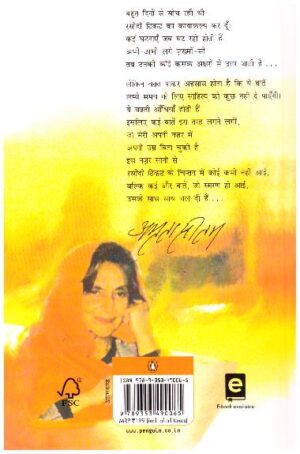 बहुत दिनों से सोच रही थी
रसीदी टिकट का कायाकल्प कर दूँ
कई घटनाएँ जब घट रही होती हैं
अभी-अभी लगे ज़ख़्मों-सी
तब उनकी कोई कसक अक्षरों में उतर जाती है ...
लेकिन वक़्त पाकर अहसास होता है कि ये बातें
लम्बे समय के लिए साहित्य को कुछ नहीं दे पाएँगी।
ये वक़्ती आँधियाँ होती हैं
इसलिए कई बातें इस तरह लगने लगीं,
जो मेरी अपनी नज़र में
अपनी उम्र बिता चुकी हैं
इस नज़र सानी से
रसीदी टिकट के चिन्तन में कोई कमी नहीं आई,
बल्कि कई और बातें, जो स्मरण हो आईं,
उसके साथ साथ चल दी हैं ...
FSC
आत्मकथा
ISBN 978-9-353-49036-5
9789353490365
MRP ₹199
www.penguin.co.in
e
E-book available